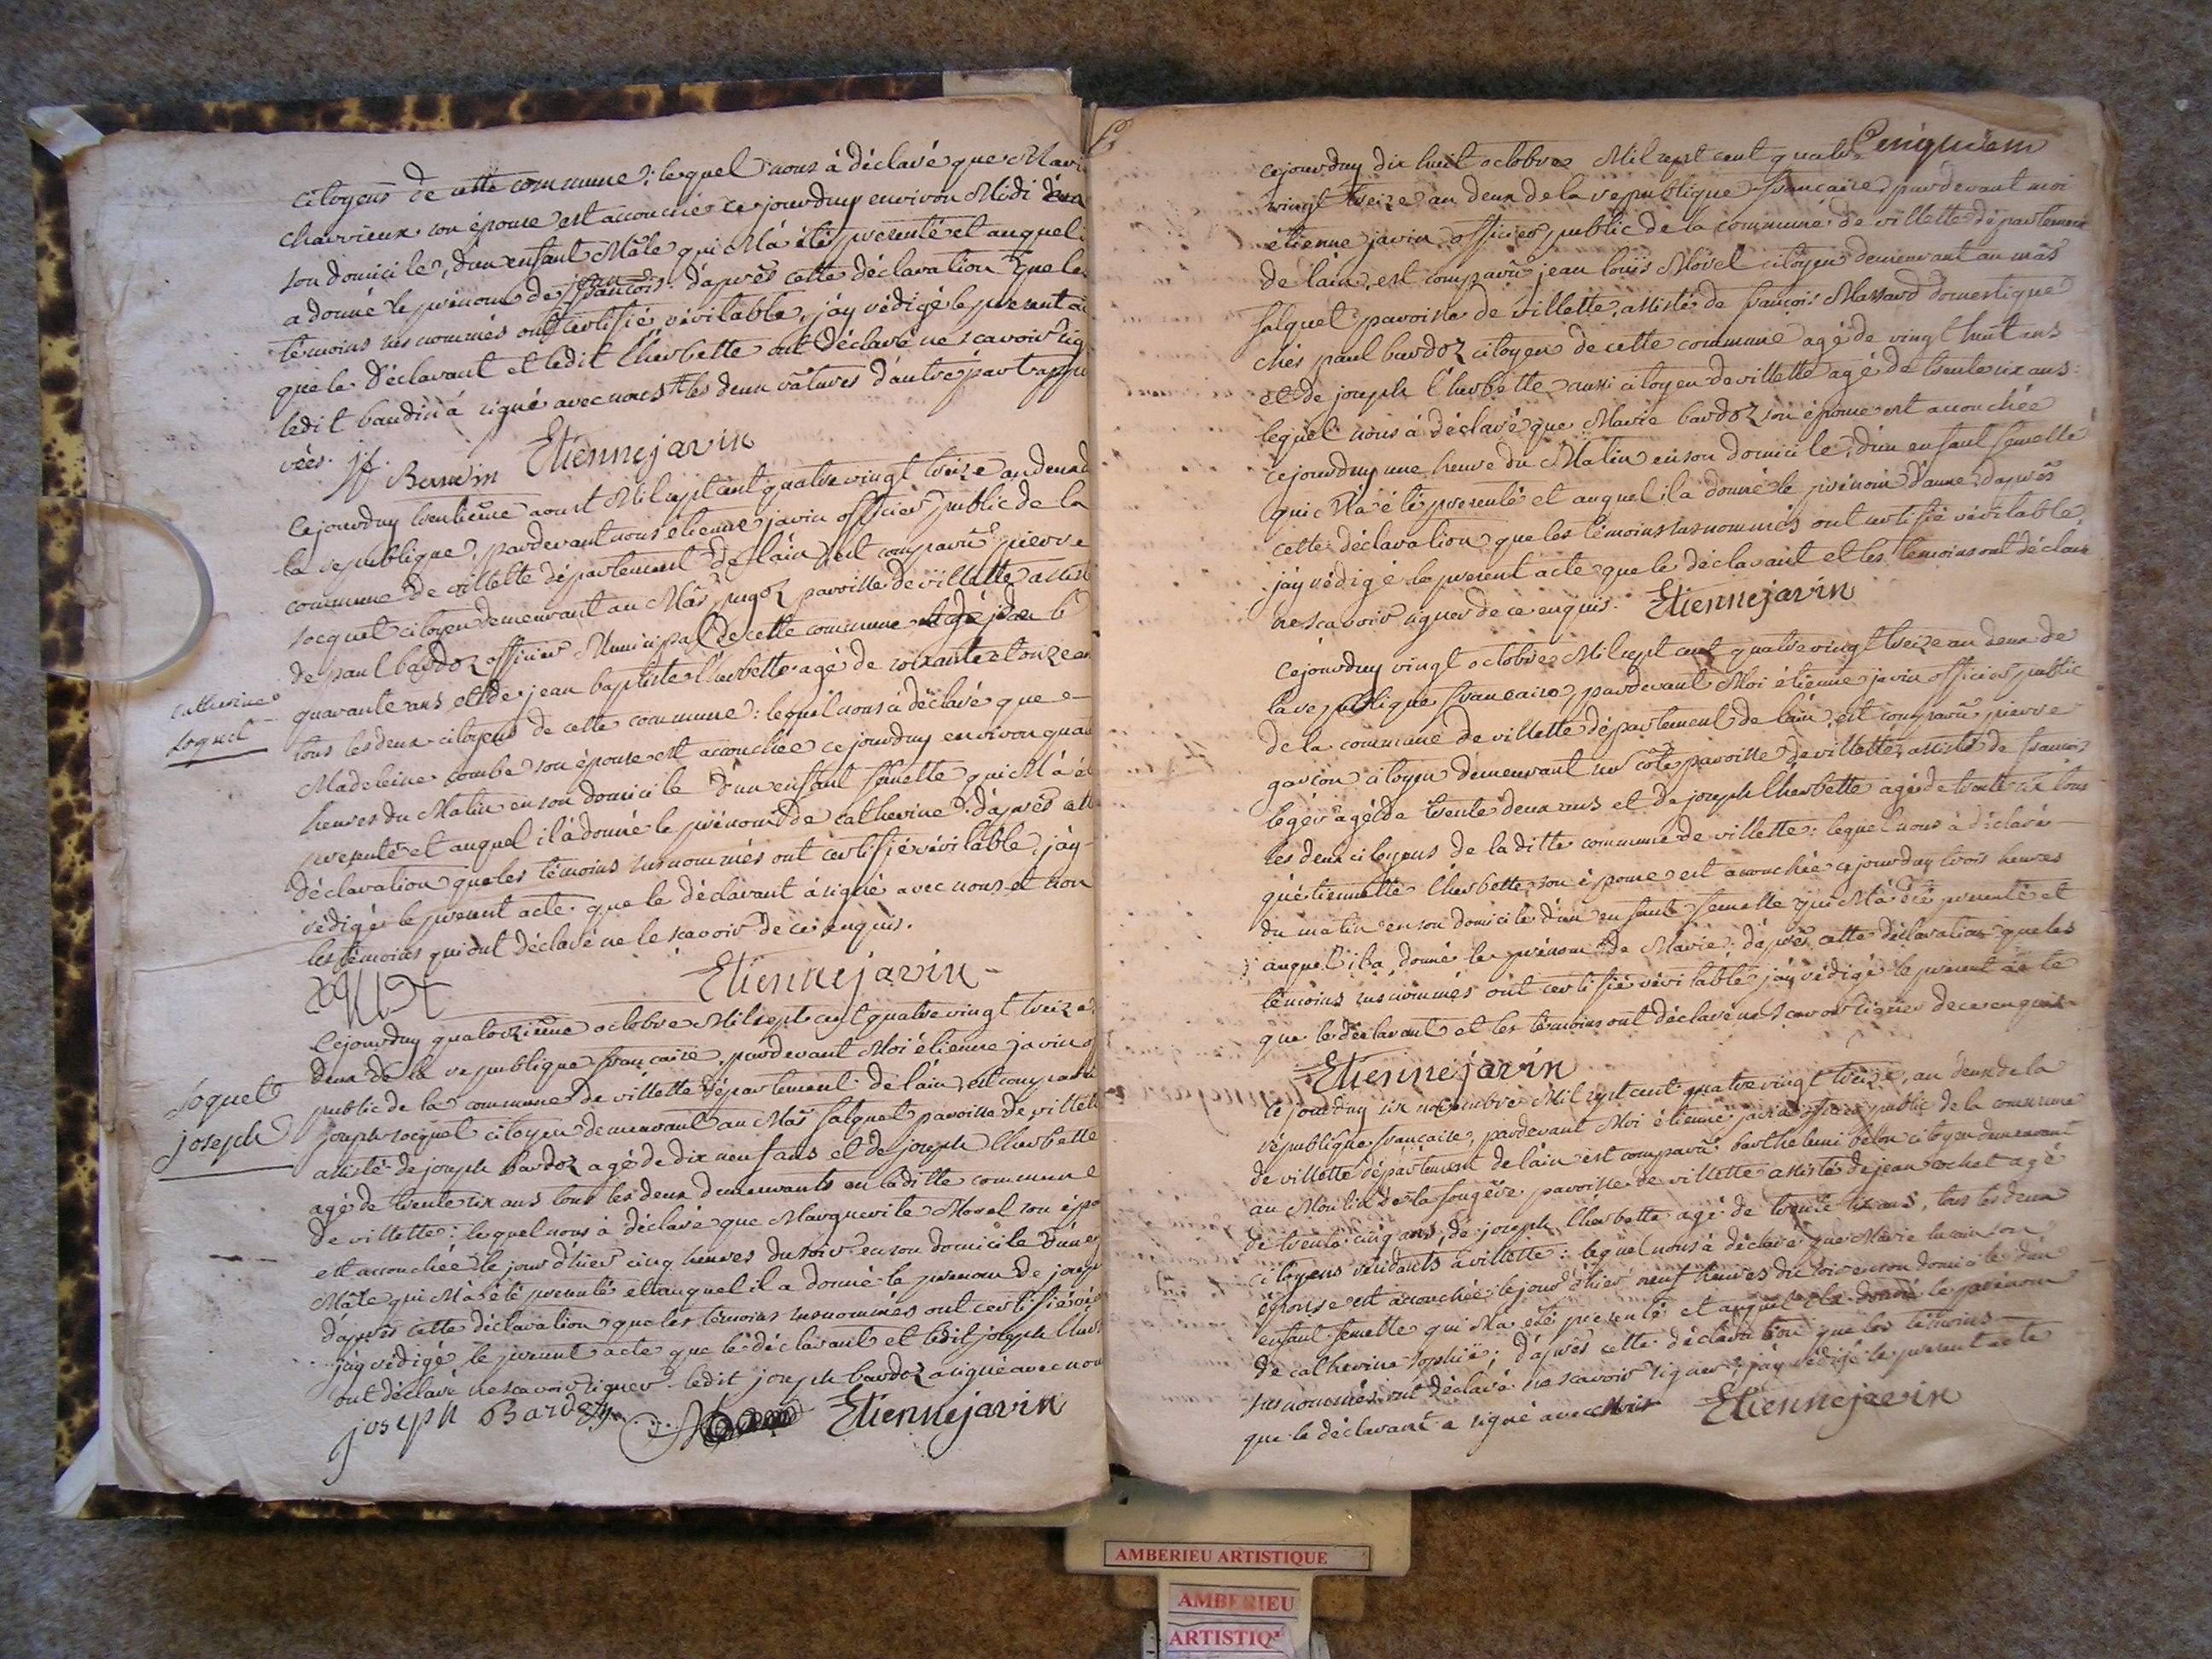 citoyens de cette commune ; lequel nous à déclaré que Mari
charvieux son épouse est accouchée ce jourdhuy environ Midi dan
son domicile, dun enfant Mâle qui M'a été presenté et auquel i
a donné le prénom de françois
jean
d'après cette déclaration que les
témoins susnommés ont certifié véritable, j'ay rédigé le present ac
que le déclarant et ledit lherbette ont déclaré ne scavoir sig
ledit baudin à signé avec nous les deux râtures d'autre part appu
vées. jf. Baudin Etienne javin
Cejourdhuy trentieme aoust Mil sept cent quatre vingt treize an deux d
la republique, pardevant nous étienne javin officier public de la
commune de villette département de l'ain est comparû pierre
socquet citoyen demeurant au Mâs jugoz paroisse de villette assist
de paul bardoz officier Municipal de cette commune agé de
quarante ans et de jean baptiste lherbette agé de soixante et onze an
tous les deux citoyens de cette commune : lequel nous à déclaré que
catherine
soquet
Madeleine combe son épouse est accouchée cejourdhuy environ quat
heures du Matin en son domicile d'un enfant femelle qui M'à ét
presenté et auquel il à donné le prénom de catherine d'après cette
déclaration que les témoins susnommés ont certifié véritable, j'ay
rédigé le present acte que le déclarant à signé avec nous et non
les témoins qui ont déclaré ne le scavoir de ce enquis.
Etienne javin
Cejourdhuy quatorzieme octobre Mil sept cent quatre vingt treize
deux de la republique française, pardevant Moi étienne javin of
public de la commune de villette département de l'ain, est comparû
soquet
joseph
joseph socquet citoyen demeurant au Mâs salquet paroisse de villett
assisté de joseph bardoz agé de dix neuf ans et de joseph lherbette
agé de trente six ans tous les deux demeurants en laditte commune
de villette : lequel nous à déclaré que Marguerite Morel son épo
est accouchée le jour d'hier cinq heures du soir en son domicile d'un en
Mâle qui M'à été presenté et auquel il a donné le prenom de josep
d'après cette déclaration que les témoins susnommés ont certifié vé
j'ay rédigé le present acte que le déclarant et ledit joseph lher
ont déclaré ne scavoir signer ledit joseph bardoz a signé avec nou
joseph Bardoz Etienne javin
cejourdhuy dix huit octobre Mil sept cent quatre
vingt treize an deux de la republique française, pardevant moi
étienne javin officier public de la commune de villette département
de l'ain, est comparû jean louis Morel citoyen demeurant au mâs
salquet paroisse de villette, assisté de françois Massard domestique
chés paul bardoz citoyen de cette commune agé de vingt huit ans
et de joseph lherbette aussi citoyen de villette agé de trente six ans :
lequel nous à déclaré que Marie bardoz son épouse est accouchée
cejourdhuy une heure du Matin en son domicile, d'un enfant femelle
qui M'à été presenté et auquel il a donné le prénom d'anne d'après
cette déclaration que les témoins susnommés ont certifié véritable
j'ay rédigé le present acte que le déclarant et les témoins ont déclaré
ne scavoir signer de ce enquis. Etienne javin
cejourdhuy vingt octobre Mil sept cent quatre vingt treize an deux de
la republique française, pardevant Moi étienne javin officier public
de la commune de villette département de l'ain, est comparû pierre
garçon citoyen demeurant sur côte paroisse de villette, assisté de françois
legér agé de trente deux ans et de joseph lherbette agé de trente six tous
les deux citoyens de laditte commune de villette : lequel nous à déclaré
qu'étiennette lherbette son épouse est accouchée cejourdhuy trois heures
du matin en son domicile d'un enfant femelle qui M'à été presenté et
auquel il a donné le prénom de Marie : d'après cette déclaration que les
témoins susnommés ont certifié véritable j'ay rédigé le present acte
que le déclarant et les témoins ont déclaré ne scavoir signer de ce enquis
Etienne javin
Cejourdhuy six novembre Mil sept cent quatre vingt treize, an deux de la
république française, pardevant Moi étienne javin officier public de la commune
de villette département de l'ain est comparû barthelemi belon citoyen demeurant
au Moulin de la fougére paroisse de villette assisté de jean cochet agé
de trente cinq ans, de joseph lherbette agé de trente six ans, tous les deux
citoyens résidants à villette : lequel nous à déclaré que Marie son
épouse est accouchée le jour d'hier neuf heures du soir en son domicile d'un
enfant femelle qui M'a été presenté et auquel il a donné le prénom
de catherine sophie ; d'après cette déclaration que les témoins
susnommés ont déclaré ne scavoir signer, j'ay rédigé le present acte
que le déclarant a signé avec Moi Etienne javin
AMBERIEU ARTISTIQUE
AMBERIEU
ARTISTIQ